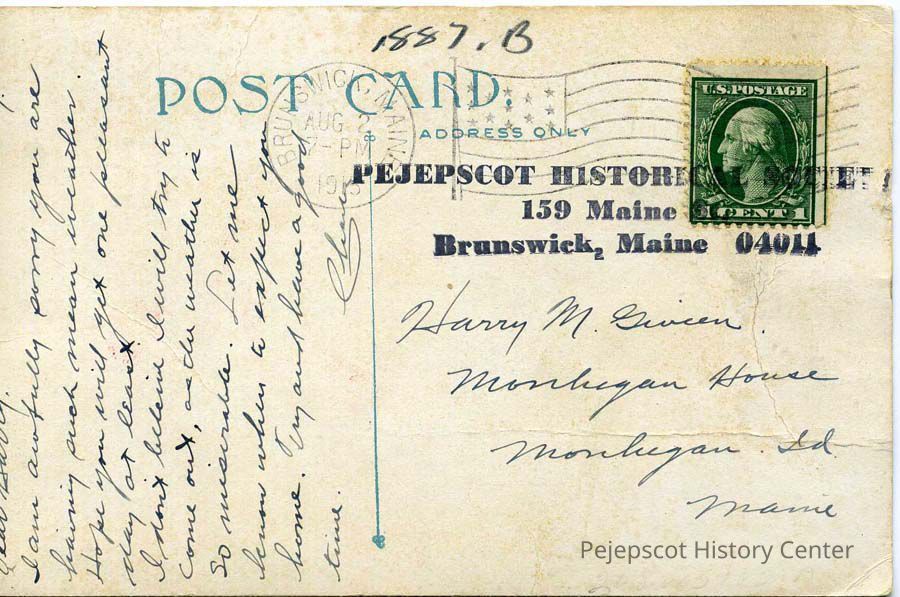 1887. B
POST CARD.
ADDRESS ONLY
BRUNSWICK, MAINE
AUG 2
- PM
U.S. POSTAGE
1 CENT 1
PEJEPSCOT HISTORICAL SOCIETY
159 Maine
Brunswick, Maine 04011
Harry M. Giveen.
Monhegan House
Monhegan Id.
Maine
Dear Harry.
I am awfully sorry you are
having such mean weather.
Hope you will get one pleasant
day at least
I don't believe I will try to
come out, as the weather is
so miserable. Let me
know when to expect you
home. Try and have a good
time.
Pejepscot History Center